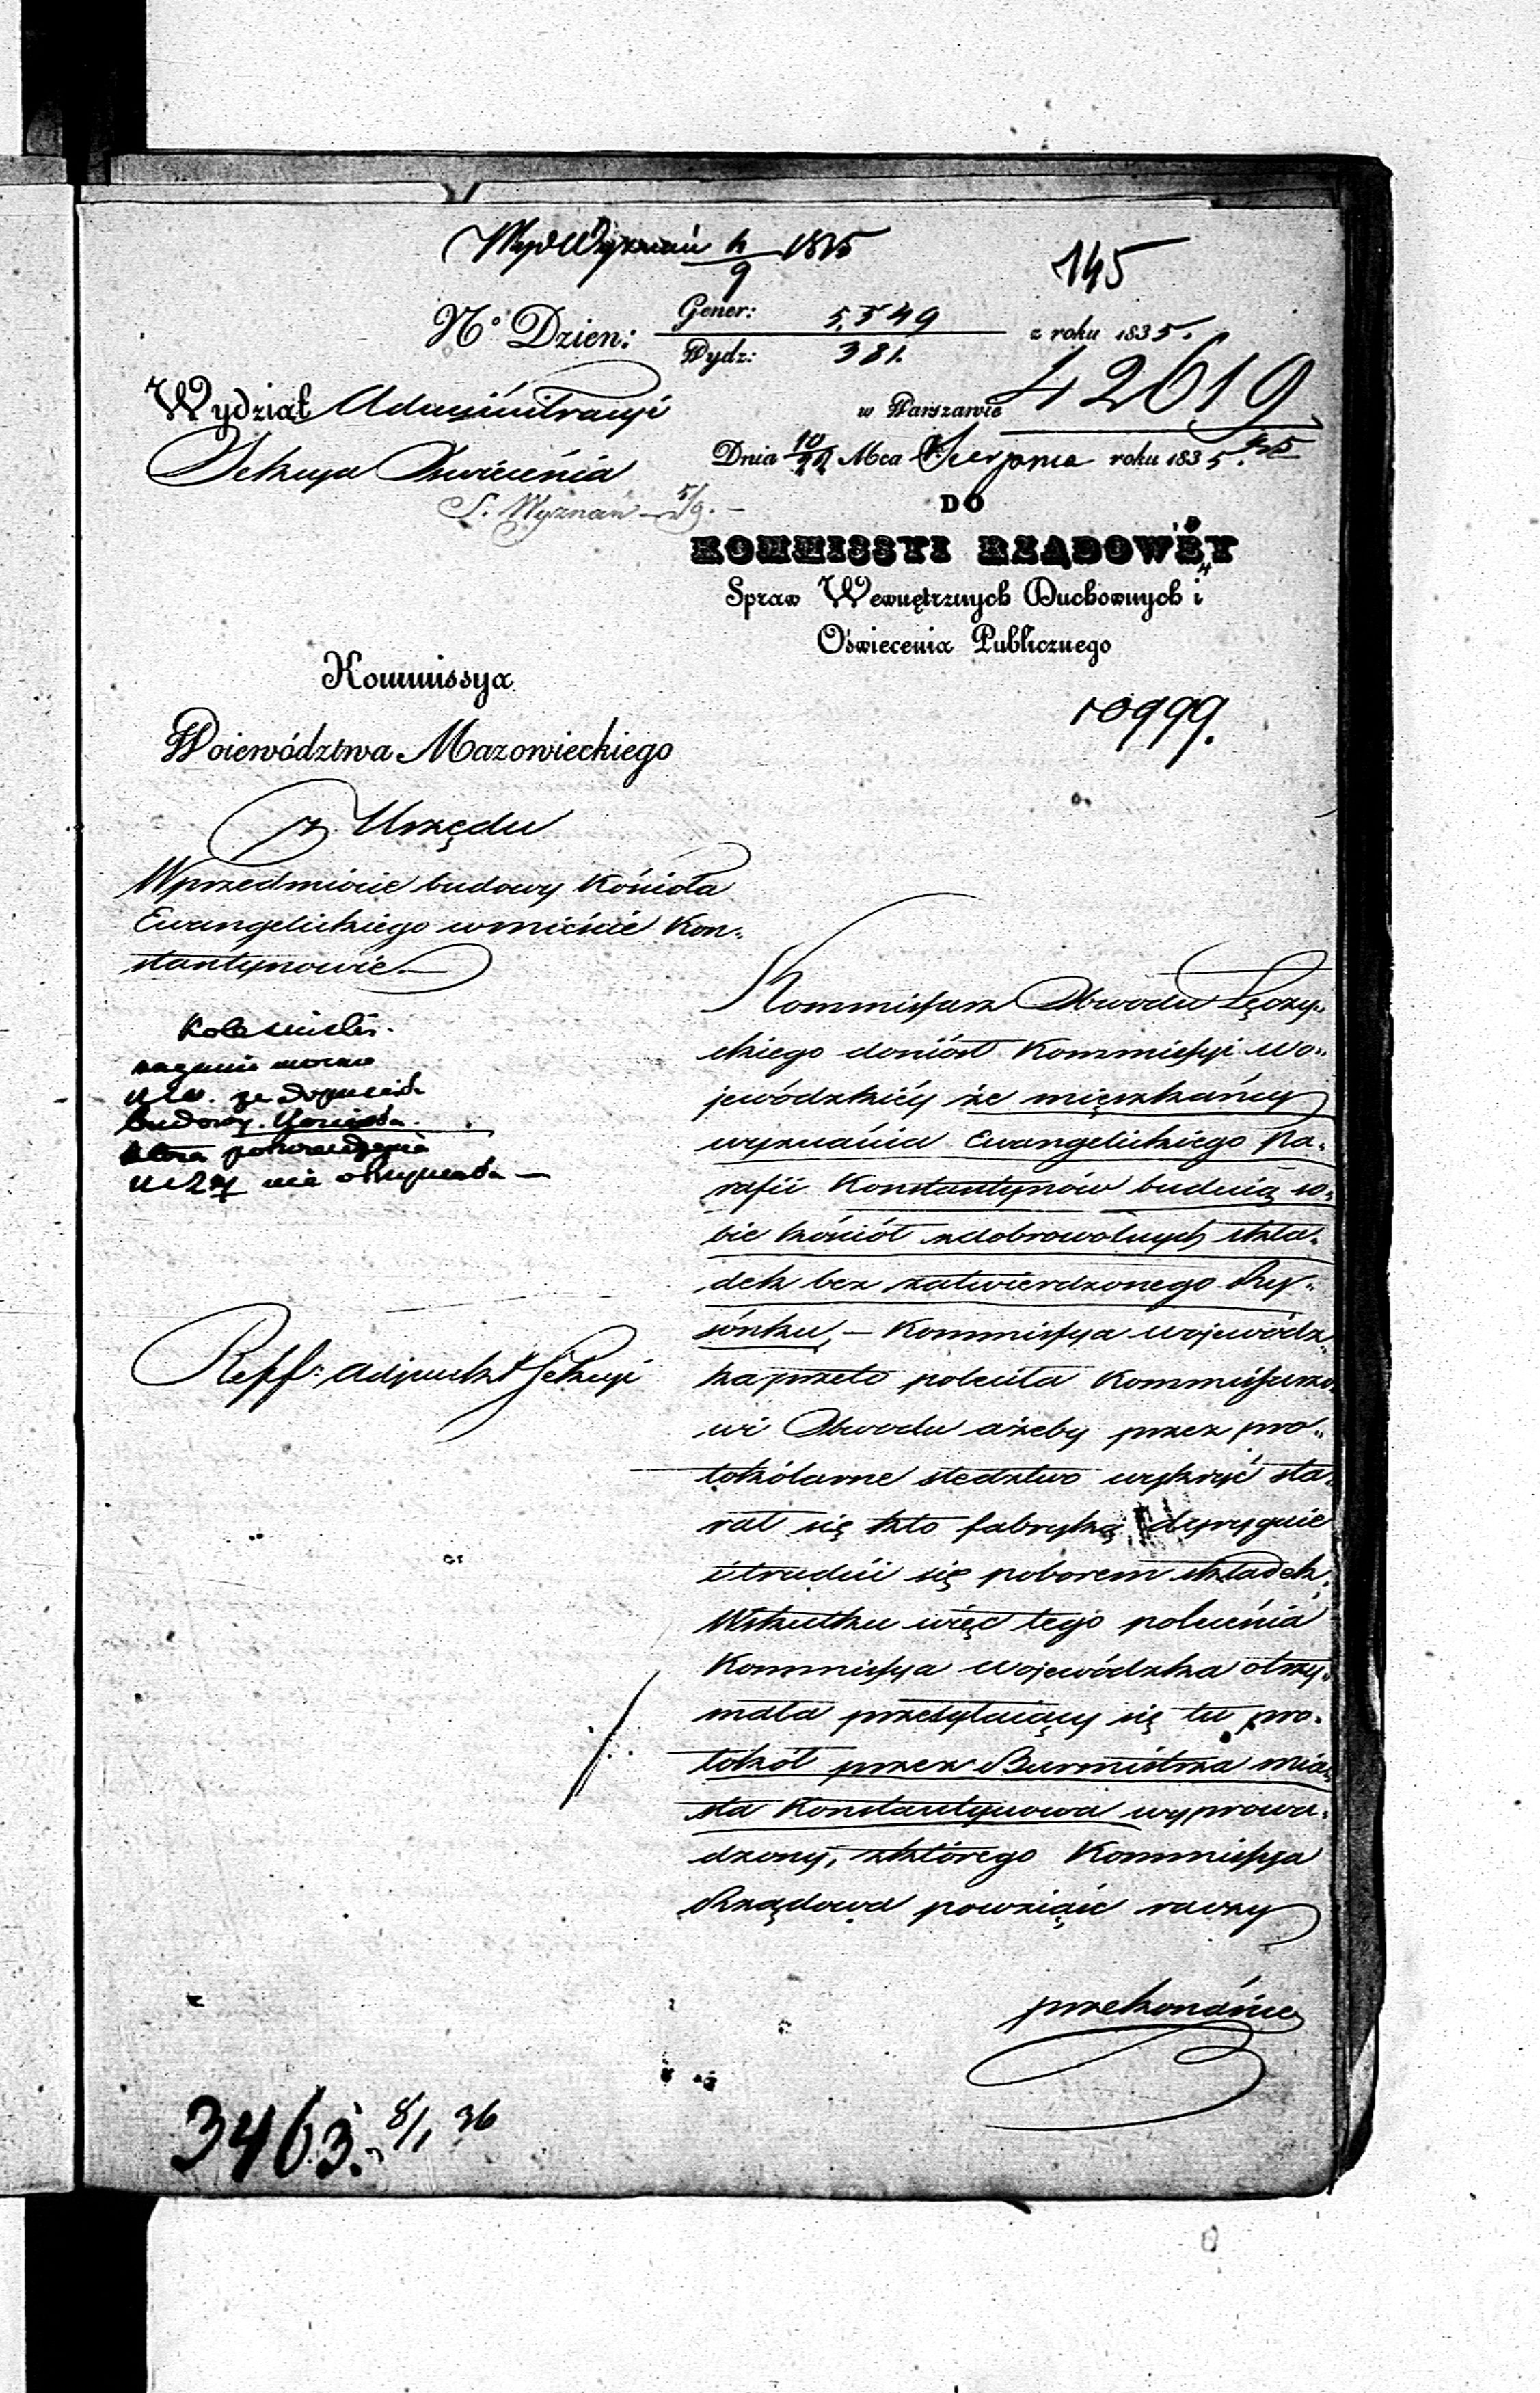 Wyd Wyznań 4/9 1835
145
No Dzien: Gener: 5,549 z roku 1835.
Wydz: 381.
42619
Wydział Administracyi
w Warszawie
Sekcya Oswiecenia
Dnia 10/22 Mca Sierpnia roku 1835.
S. Wyznań 5/9. —
DO
KOMMISSYI RZĄDOWÉY
Spraw Wewnętrznych Duchownych i
Oświecenia Publicznego
Kommissya
10999.
Woiewództwa Mazowieckiego
z Urzędu
W przedmiocie budowy Kościoła
Ewangelickiego w mieście Kon-
stantynowie.—
nie otrzymała —
Reff: Adjunkt Sekcyi
Kommissarz Obwodu Łęczy-
ckiego doniósł Kommissyi Wo-
jewódzkiéy że mięszkańcy
wyznania Ewangelickiego Pa-
rafii Konstantynów buduią so-
bie kościół z dobrowolnych skła-
dek bez zatwierdzonego Ry-
sónku, — Kommissya wojewódz-
ka przeto poleciła Kommissarzo-
wi Obwodu ażeby przez pro-
tokólarne sledztwo wykryć sta-
rał się kto fabryką dyryguie
i trudni się poborem składek,
Wskutku więc tego polecenia
Kommissya Wojewódzka otrzy-
mała przesyłaiący się tu pro-
tokół przez Burmistrza mia-
sta Konstantynowa wyprowa-
dzony, z którego Kommissya
Rządowa powziąść raczy
przekonanie
3463. 8/1 36